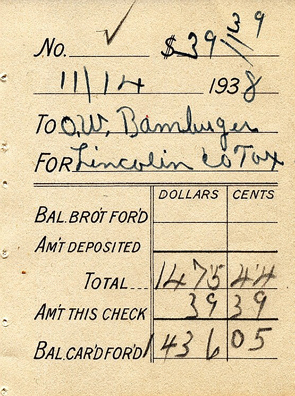 No. ✓ $39 39
11/14 1938
TO O.W. Bamburger
FOR Lincolin co Tax
DOLLARS CENTS
BAL. BRO'T FOR'D
AM'T DEPOSITED
TOTAL... 1475 44
AM'T THIS CHECK 39 39
BAL. CAR'D FOR'D 1436 05